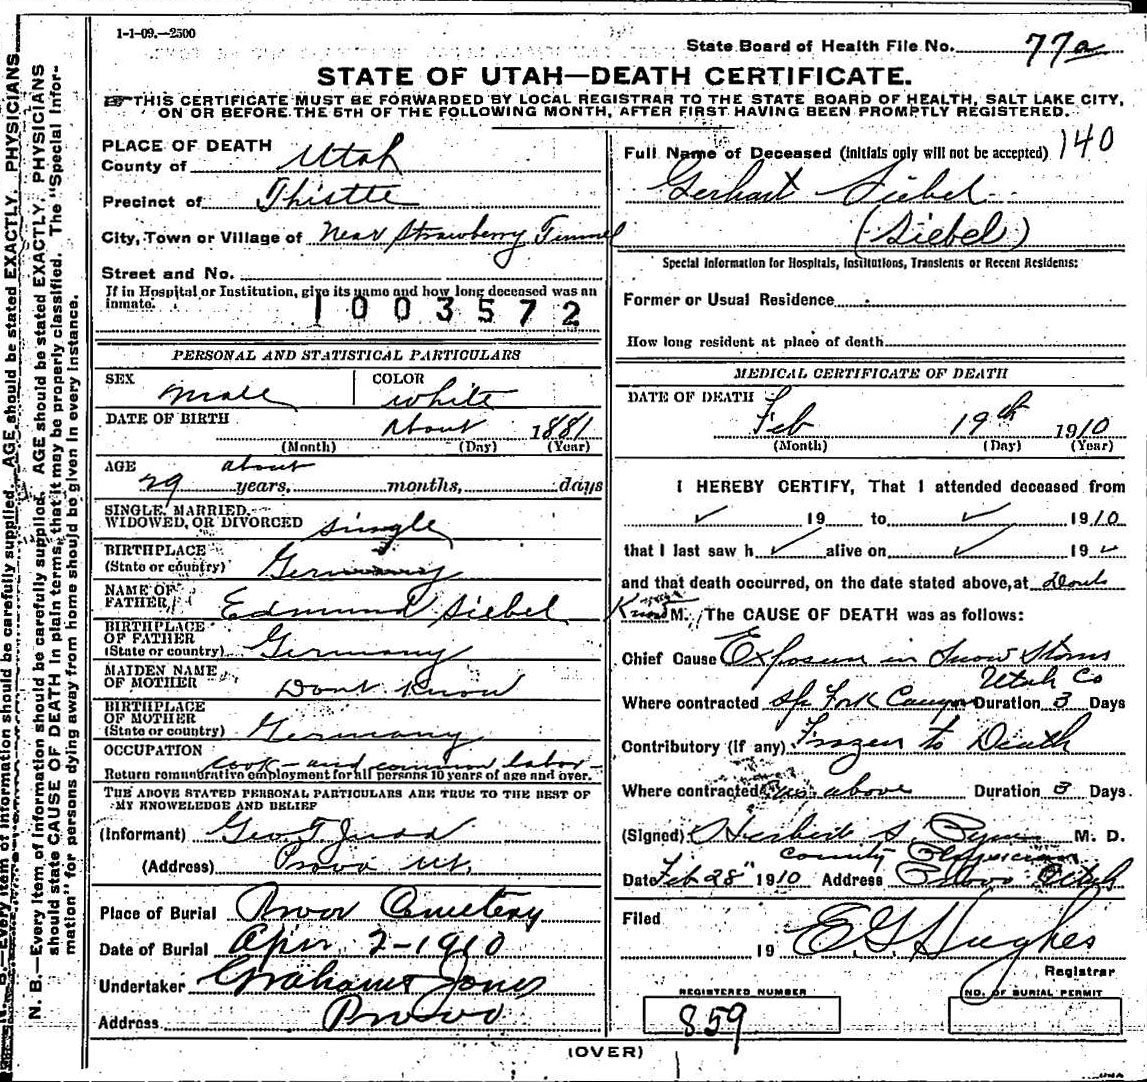 1-1-09.—2500
State Board of Health File No. 77a
STATE OF UTAH—DEATH CERTIFICATE.
THIS CERTIFICATE MUST BE FORWARDED BY LOCAL REGISTRAR TO THE STATE BOARD OF HEALTH, SALT LAKE CITY,
ON OR BEFORE THE 5TH OF THE FOLLOWING MONTH, AFTER FIRST HAVING BEEN PROMPTLY REGISTERED.
N. B.—Every item of information should be carefully supplied. AGE should be stated EXACTLY. PHYSICIANS
should state CAUSE OF DEATH in plain terms, that it may be properly classified. The "Special Infor-
mation" for persons dying away from home should be given in every instance.
PLACE OF DEATH
County of Utah
Precinct of Thistle
City, Town or Village of Near Strawberry Tunnel
Street and No.
If in Hospital or Institution, give its name and how long deceased was an
inmate.
1003572
PERSONAL AND STATISTICAL PARTICULARS
SEX Male COLOR White
DATE OF BIRTH About 1881
(Month) (Day) (Year)
AGE about
29 years, months, days
SINGLE, MARRIED,
WIDOWED, OR DIVORCED Single
BIRTHPLACE
(State or country) Germany
NAME OF
FATHER Edmund Siebel
BIRTHPLACE
OF FATHER
(State or country) Germany
MAIDEN NAME
OF MOTHER Dont Know
BIRTHPLACE
OF MOTHER
(State or country) Germany
OCCUPATION cook - and common labor -
Return remunerative employment for all persons 10 years of age and over.
THE ABOVE STATED PERSONAL PARTICULARS ARE TRUE TO THE BEST OF
MY KNOWLEDGE AND BELIEF
(Informant) Geo T Judd
(Address) Provo Ut.
Place of Burial Provo Cemetery
Date of Burial Apr. 2-1910
Undertaker Graham Jones
Address Provo
140
Full Name of Deceased (initials only will not be accepted)
Gerhart Siebel
(Siebel)
Special Information for Hospitals, Institutions, Transients or Recent Residents:
Former or Usual Residence
How long resident at place of death
MEDICAL CERTIFICATE OF DEATH
DATE OF DEATH
Feb 19th 1910
(Month) (Day) (Year)
I HEREBY CERTIFY, That I attended deceased from
✓ 19 to ✓ 1910
that I last saw h ✓ alive on ✓ 19 ✓
and that death occurred, on the date stated above, at Dont
Know M. The CAUSE OF DEATH was as follows:
Chief Cause Exposure in Snow Storm
Utah Co
Where contracted Sp Fork Canyon Duration 3 Days
Contributory (if any) Frozen to Death
Where contracted as above Duration 3 Days.
(Signed) Herbert S. Pyne M. D.
County Physician
Date Feb 28" 1910 Address Provo Utah
Filed
19 E G Hughes
Registrar
REGISTERED NUMBER
859
NO. OF BURIAL PERMIT
(OVER)